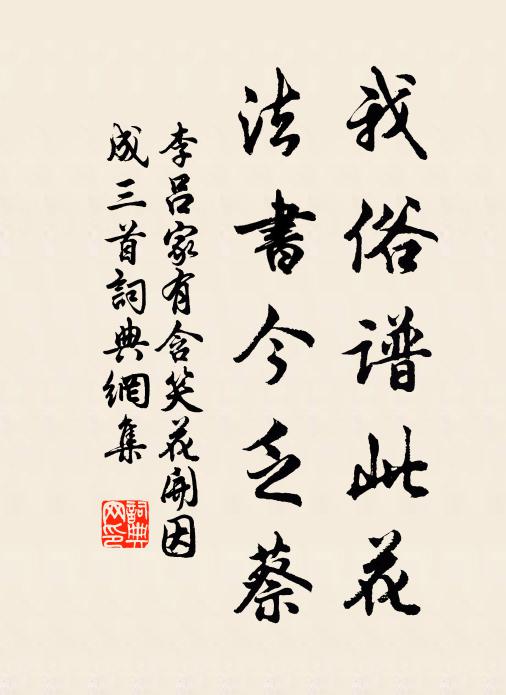 我俗谱此花
法書今乏蔡
李吕家有含笑花開因
成三首詞典網集
詞典
网印